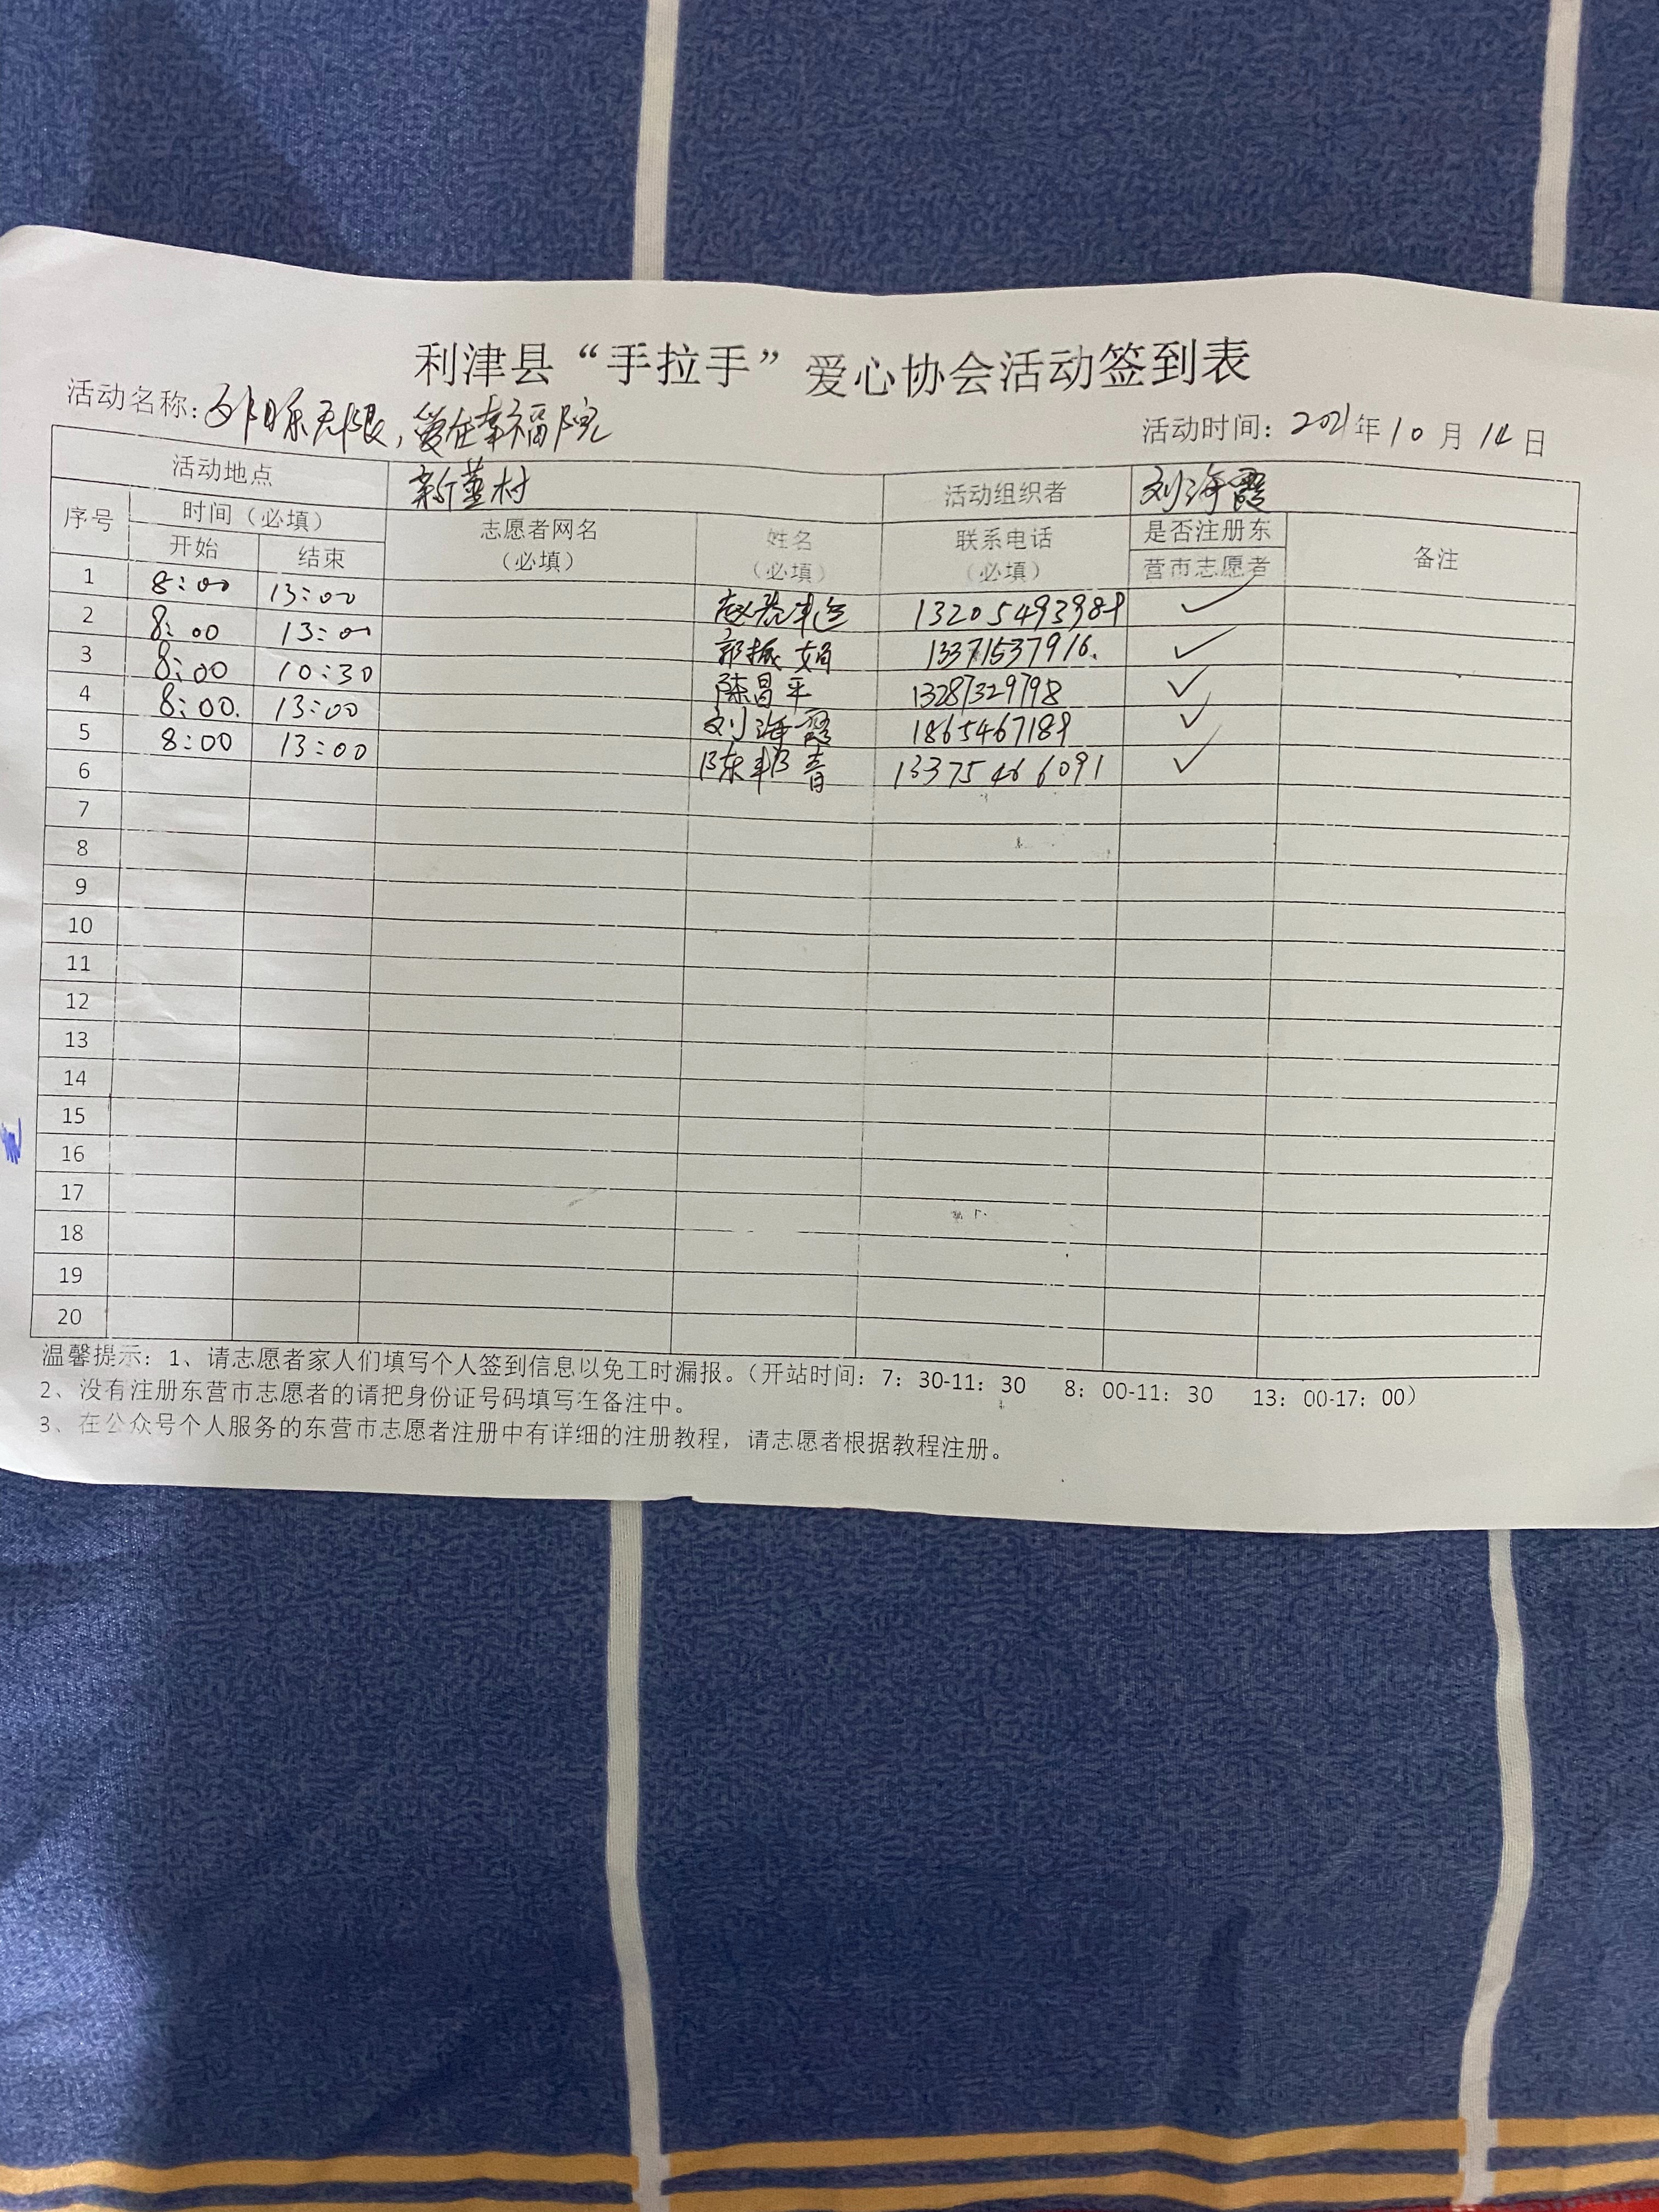 利津县“手拉手”爱心协会活动签到表
活动名称：夕阳乐无限，爱在幸福院 活动时间：2021年10月14日
活动地点 新董村 活动组织者 刘海霞
序号 时间（必填） 志愿者网名（必填） 姓名（必填） 联系电话（必填） 是否注册东营市志愿者 备注
开始 结束
1 8:00 13:00 13205493989 ✓
2 8:00 13:00 郭振娟 13371537916. ✓
3 8:00 10:30 陈昌平 13287329798 ✓
4 8:00. 13:00 刘海霞 1865467189 ✓
5 8:00 13:00 陈邦青 13375466091 ✓
6
7
8
9
10
11
12
13
14
15
16
17
18
19
20
温馨提示：1、请志愿者家人们填写个人签到信息以免工时漏报。（开站时间：7：30-11：30 8：00-11：30 13：00-17：00）
2、没有注册东营市志愿者的请把身份证号码填写在备注中。
3、在公众号个人服务的东营市志愿者注册中有详细的注册教程，请志愿者根据教程注册。